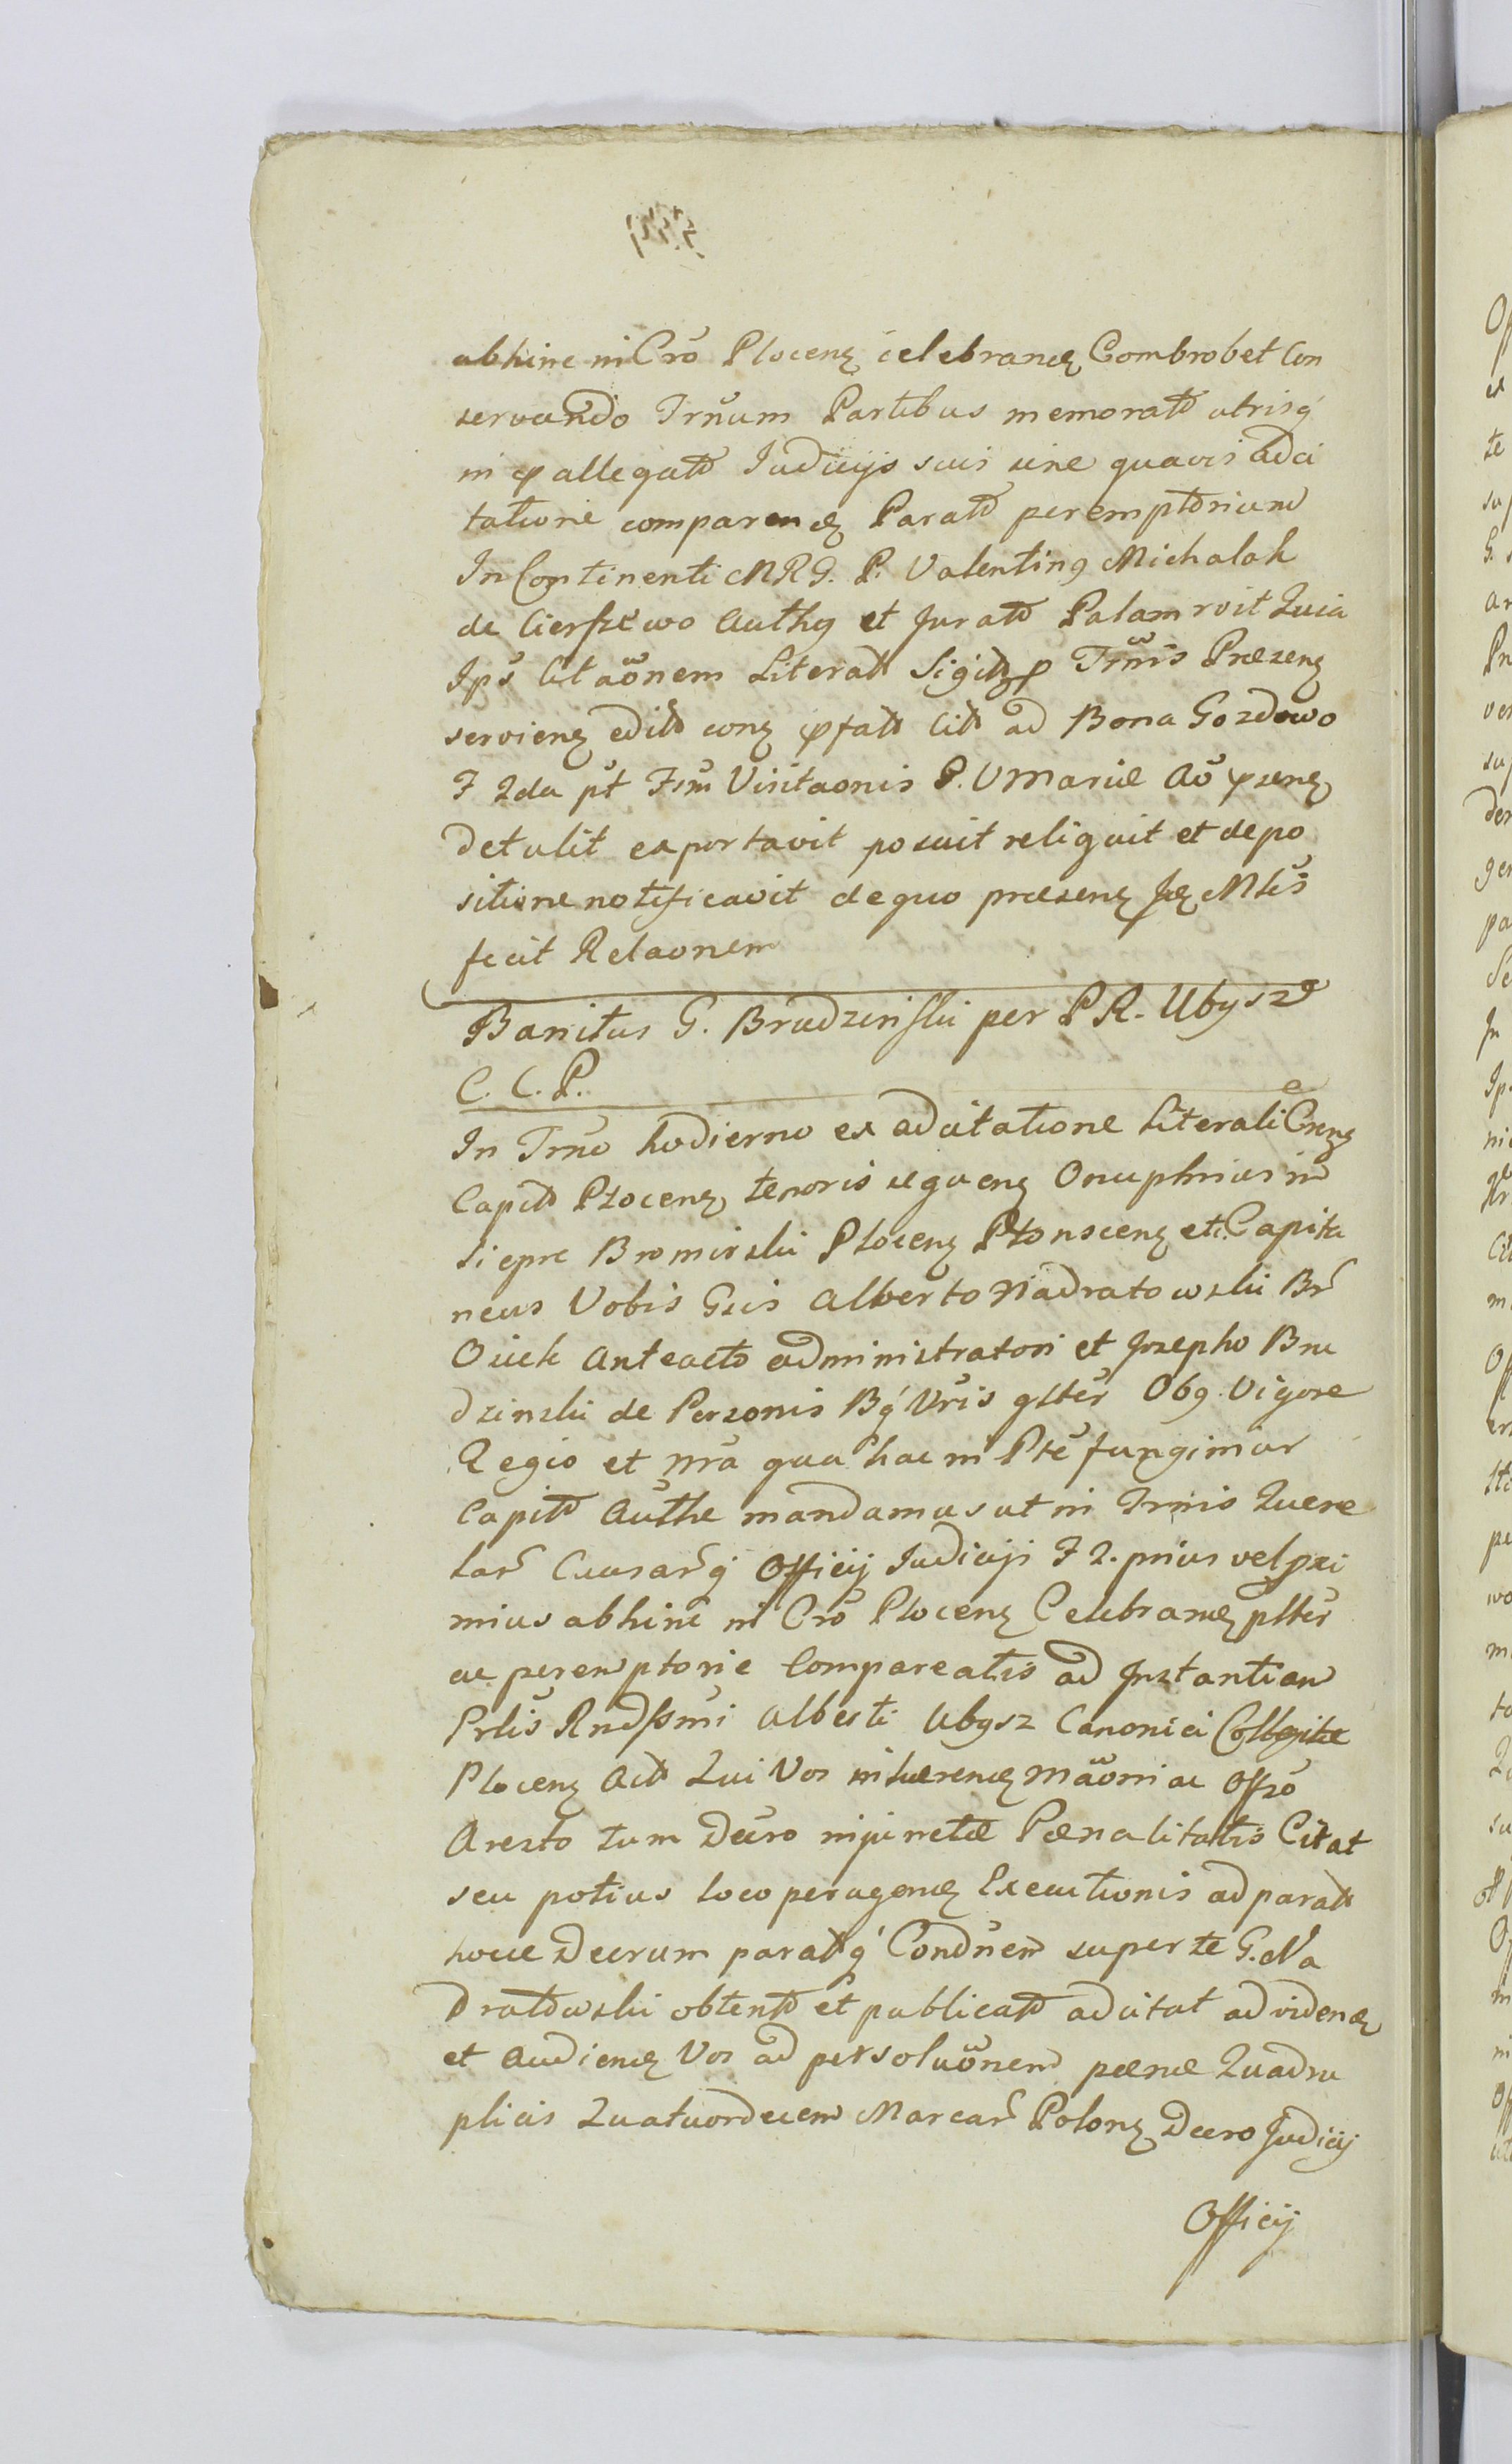 abhinc in Crō Plocenꝫ celebranđꝫ Combrobet Con
servando Trñum Partibus memorato utrisq́
in p̄allegato Judicijs suis sine quavis adci
tatione comparenđꝫ Parato peremptorium
In Continenti MRG. P. Valentin9 Michalak
de Cierszewo Auth9 et Jurato Palam r̄vit Quia
Ips̄ Citaōnem Literat Sigitt p Trm̄is Præsenꝫ
servienꝫ edit conꝫ p̄fatt Citt ad Bona Gozdowo
F 2da pt̄ Fsm̄ Visitaonis B. V Mariæ Aō p̄senꝫ
detulit exportavit posuit reliquit et depo
sitione notificavit de quo præsenꝫ Jđꝫ Mtis̄
fecit Relaonem
Banitus G. Brudzinski per P R. Ubysz
C. C. P.
In Trn̄o hodierno ex adcitatione Literali
Capit Plocenꝫ tenoris sequenꝫ Onuphrius in
Siepre Bromirski Plocenꝫ Płonscenꝫ etc Capita
neus Vobis Gsis Alberto Nadratowski Br̄
Osiek Anteacto administratori et Josepho Bru
dzinski de Personis Bq́ Vr̄is gltēr Obq Vigore
Regio et nr̄a qua hac in Ptē fungimur
Capit Authe mandamus ut in Trmis Quere
lar̄ Causar̄q Officij Judicijs F 2. prius vel pxi
mius abhinc in Crō Plocenꝫ Celebranđꝫ pltēr
ac peremptorie Compareatis ad Instantiam
Prlis̄ Rndssmī Alberti Ubysz Canonici Collegitæ
Plocenꝫ Act Qui Vos inhærenđꝫ maōni ac Offsō
Aresto tum Decr̄o injunctæ Pœnalitatis Citat
seu potius loco peragenđꝫ Executionis ad parat
hocce Decrum paratq́ Condn̄em super te G. Na
dratowski obtento et publicato adcitat ad videnđꝫ
et Audienđꝫ Vos ad persoluōnem pœnæ Quadru
plicis Quatuordecem Marcar̄ Polonꝫ Decro Judicij
Officij